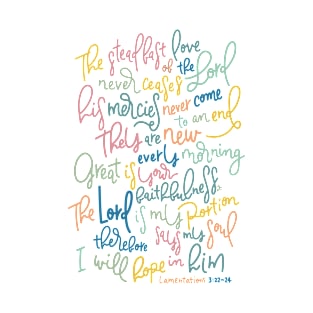 The steadfast love
of the Lord
never ceases
his mercies never come
to an end
They are new
every morning
Great is your
faithfulness
The Lord is my portion
says my soul
therefore
I will hope in him
Lamentations 3:22-24